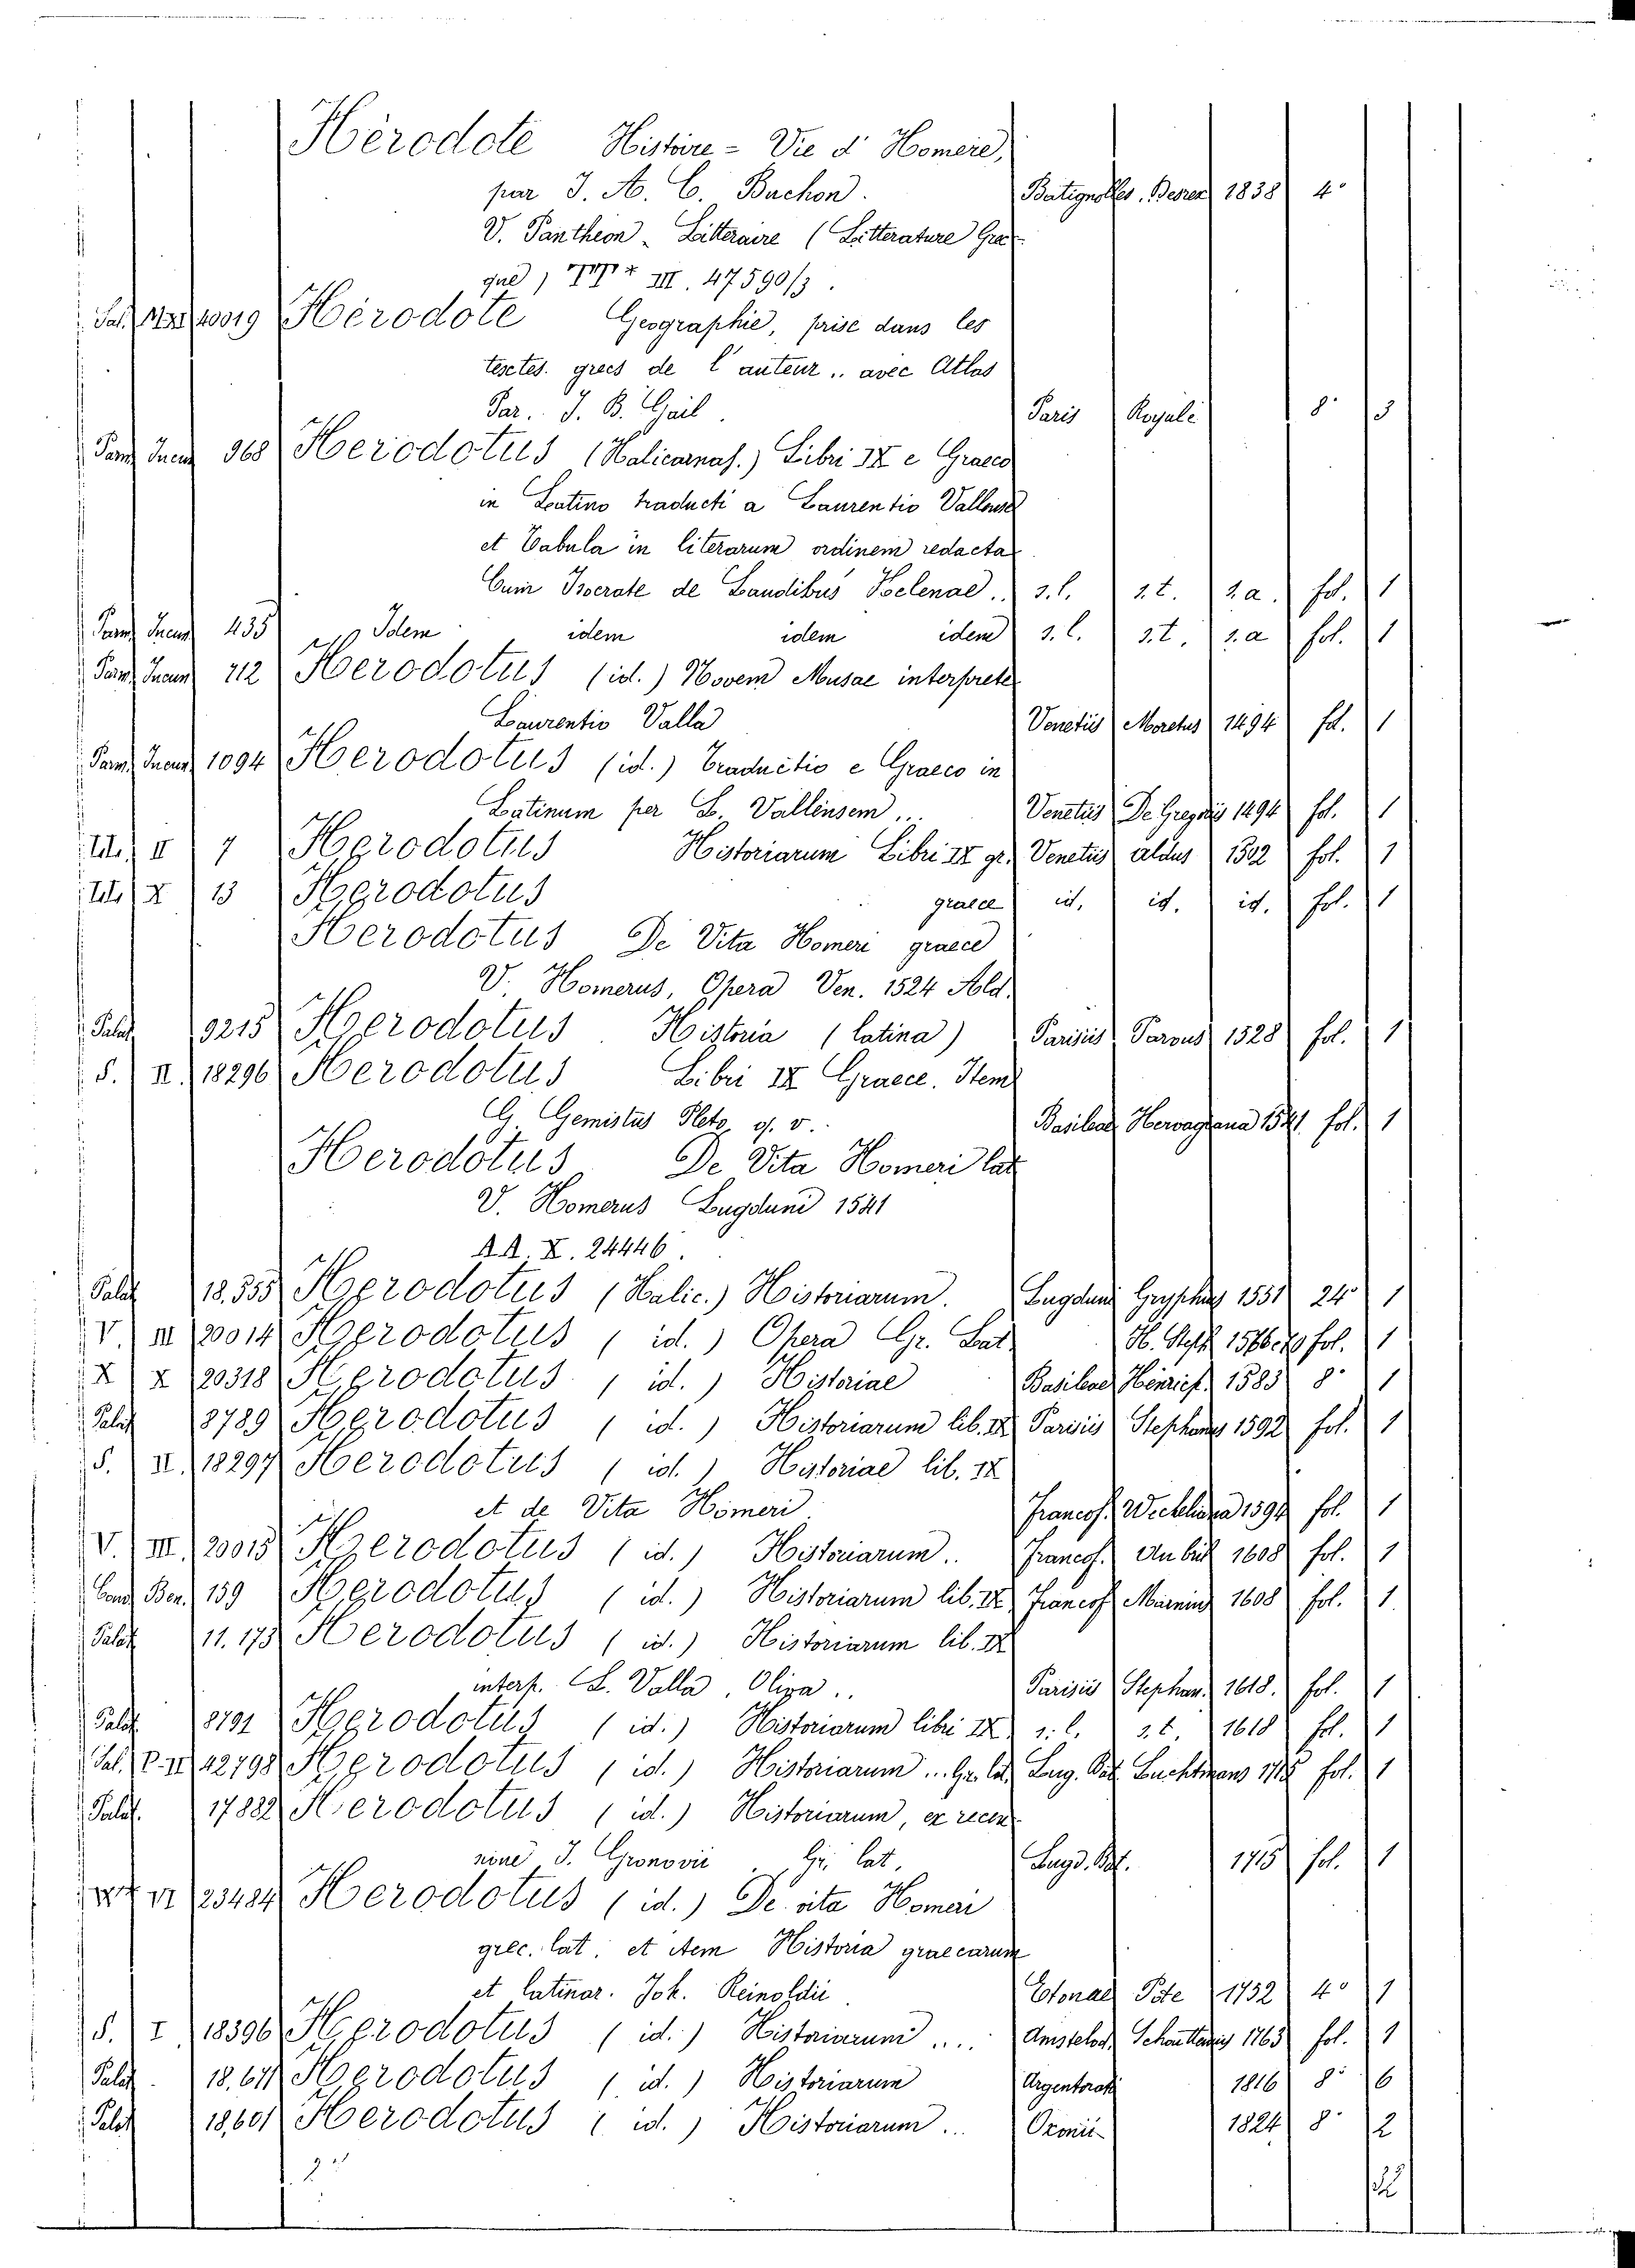 Hérodote Histoire - Vie d' Homere,
par J. A. C. Buchon. Batignolles. Desrez 1838 4°
V. Pantheon - Litteraire (Litterature Grec
que) III. 47590/3.
Sal. 40019 Hérodote Geographie, prise dans les
textes. grecs de l'auteur .. avec Atlas
Par. J. B. Gail. Paris Royale 8° 3
Parm. Incun 968 Herodotus (Halicarnas.) Libri IX e Graeco
in Latino traducti a Laurentio Vallense
et Tabula in literarum ordinem redacta
Cum Isocrate de Laudibus Helenae .. s. l. s. t. s. a. fol. 1
Parm. Incun 435 Idem idem idem idem s. l. s. t. s. a fol. 1
Parm. Incun 712 Herodotus (id.) Novem Musae interprete
Laurentio Valla Venetiis Moretus 1494 fol. 1
Parm. Incun 1094 Herodotus (id.) Traductio e Graeco in
Latinum per L. Vallensem ... Venetiis De Gregoriis 1494 fol. 1
II 7 Herodotus Historiarum Libri IX gr. Venetiis Aldus 1502 fol. 1
X 13 Herodotus graece id. id. id. fol. 1
Herodotus De Vita Homeri graece
V. Homerus, Opera Ven. 1524 Ald.
Palat 9215 Herodotus Historia (latina) Parisiis Parvus 1528 fol. 1
S. II. 18296 Herodotus Libri IX Graece. Item
G. Gemistus Pleto g. v.. Basileae Hervagiana 1541 fol. 1
Herodotus De Vita Homeri lat
V. Homerus Lugduni 1541
A A. X. 24446.
Palat 18.555 Herodotus (Halic.) Historiarum. Lugduni Gryphius 1551 24° 1
V. III 20014 Herodotus (id.) Opera Gr. Lat. H. Steph. fol. 1
X X 20318 Herodotus (id.) Historiae Basileae Henricp. 1583 8° 1
Palat 8789 Herodotus (id.) Historiarum lib. IX Parisiis Stephanus 1592 fol. 1
S. II. 18297 Herodotus (id.) Historiae lib. IX
et de Vita Homeri Francof. Wecheliana 1594 fol. 1
V. III. 20015 Herodotus (id.) Historiarum.. Francof. 1608 fol. 1
Cond Ben. 159 Herodotus (id.) Historiarum lib. IX Francof 1608 fol. 1
Palat 11.173 Herodotus (id.) Historiarum lib. IX
interp. L. Valla. Oliva .. Parisiis Stephan. 1618. fol. 1
Palat 8791 Herodotus (id.) Historiarum libri IX s. l. s. t. 1618 fol. 1
Sal. 42798 Herodotus (id.) Historiarum ... Gr. lat. Lug. Bat. Luchtmans 1715 fol. 1
Palat. 17882 Herodotus (id.) Historiarum, ex recen
sione J. Gronovii. Gr. lat. Lugd. Bat. 1715 fol. 1
VI 23484 Herodotus (id.) De vita Homeri
grec. lat. et item Historia graecarum
et latinar. Joh. Reinoldii Etonae Pote 1752 4° 1
S. I 18396 Herodotus (id.) Historiarum .... Amstelod. Schouttenius 1763 fol. 1
Palat. 18.611 Herodotus (id.) Historiarum Argentorati 1816 8° 6
Palat 18,601 Herodotus (id.) Historiarum... Oxonii 1824 8° 2